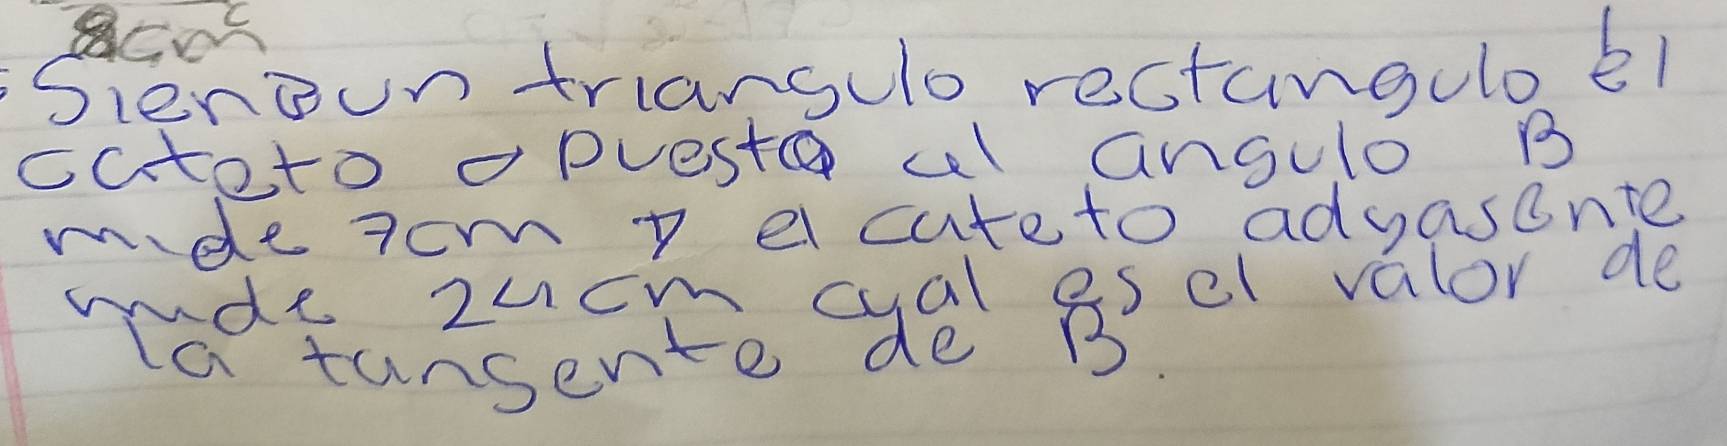 8cm
Sien un triangulo rectangulo El
cateto opuesto al angulo B
mide 7cm y el cateto adyasente
mide 24cm cual es el valor de
la tangente de B.